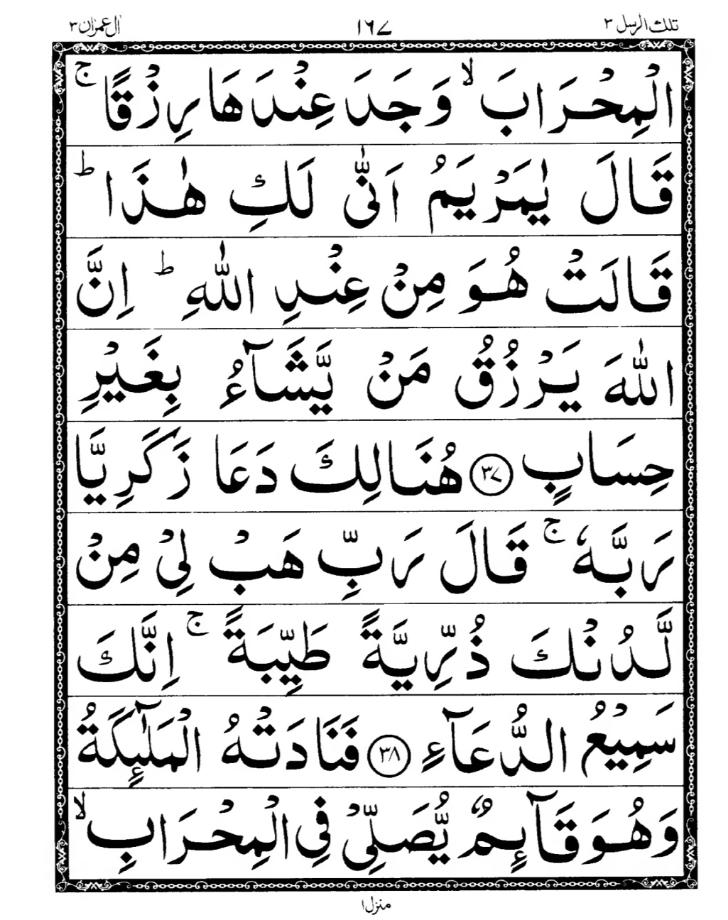 تلك الرسل ٣ ١٦٧ اٰل عمرٰن ٣
الْمِحْرَابَ ۙ وَجَدَ عِنْدَهَا رِزْقًا ۚ
قَالَ يٰمَرْيَمُ اَنّٰى لَكِ هٰذَا ؕ
قَالَتْ هُوَ مِنْ عِنْدِ اللّٰهِ ؕ اِنَّ
اللّٰهَ يَرْزُقُ مَنْ يَّشَآءُ بِغَيْرِ
حِسَابٍ ﴿۳۷﴾ هُنَالِكَ دَعَا زَكَرِيَّا
رَبَّهٗ ۚ قَالَ رَبِّ هَبْ لِيْ مِنْ
لَّدُنْكَ ذُرِّيَّةً طَيِّبَةً ۚ اِنَّكَ
سَمِيْعُ الدُّعَآءِ ﴿۳۸﴾ فَنَادَتْهُ الْمَلٰٓئِكَةُ
وَهُوَ قَآئِمٌ يُّصَلِّيْ فِي الْمِحْرَابِ ۙ
منزل ١